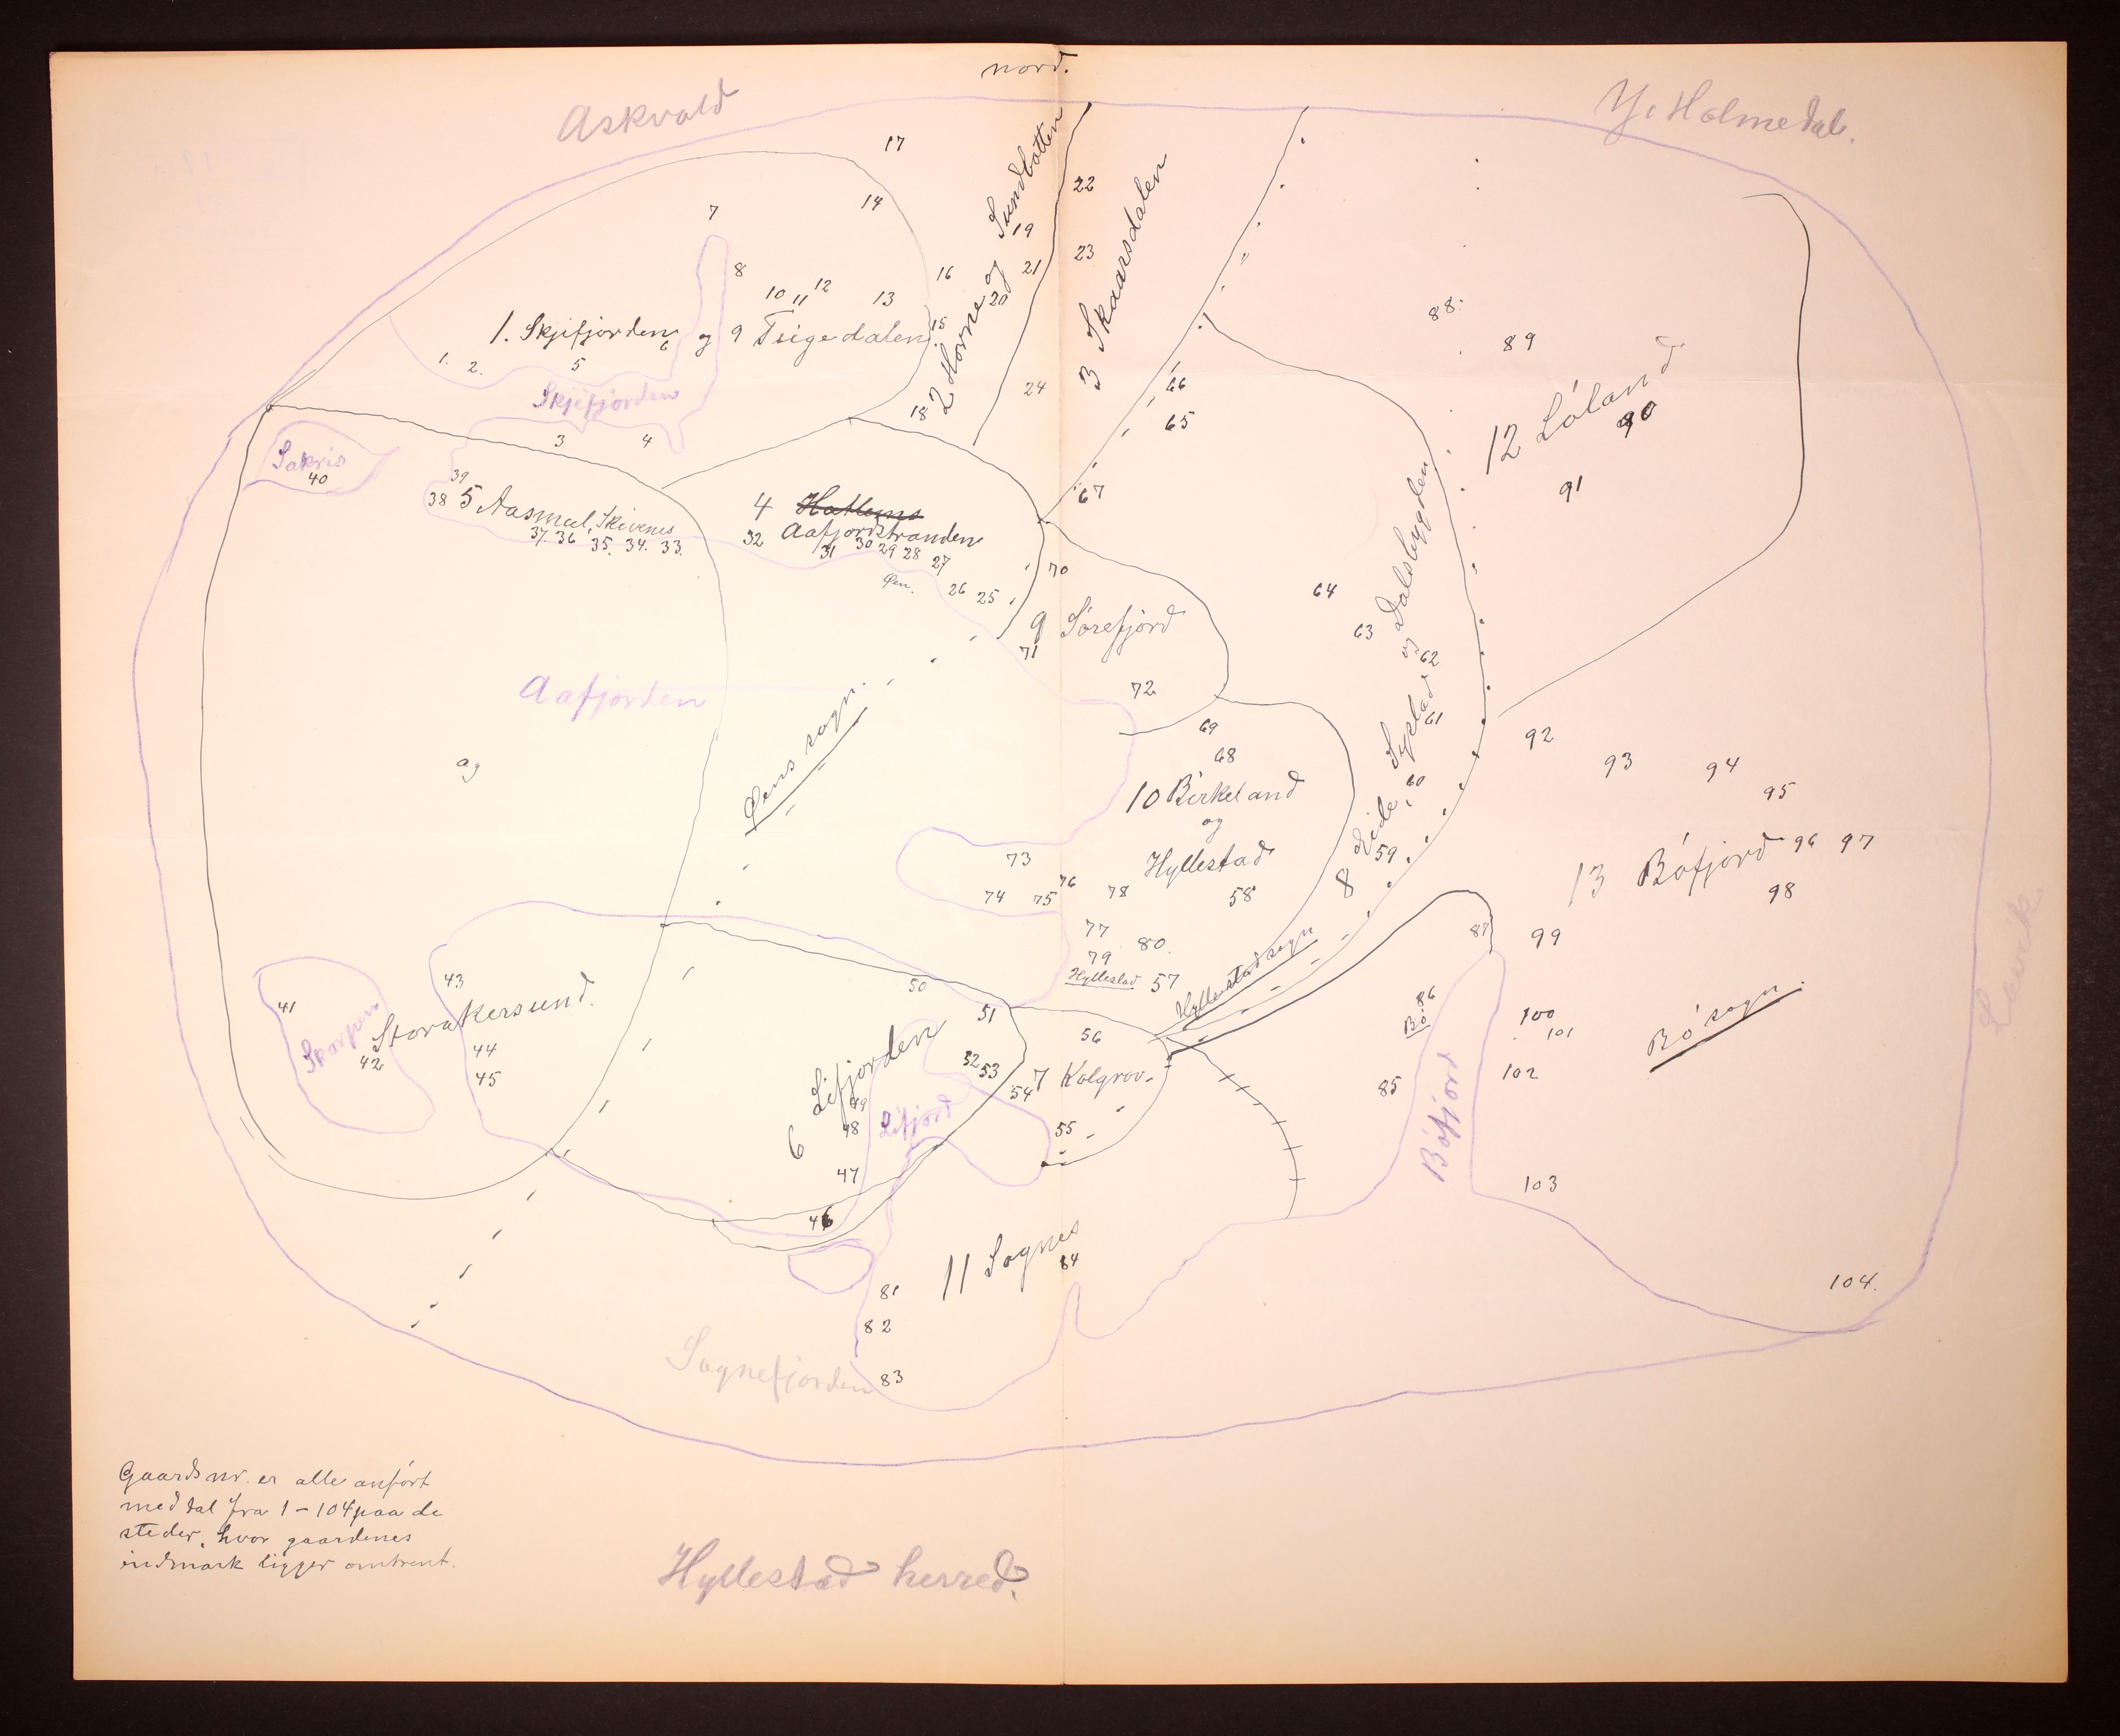 nord.
Askvold
Y. Holmedal.
17
22
14
7
2 Hovne og Sundbotten
19
3 Skaarsdalen
23
8
16
21
20
10 11 12
13
88.
1. Skjifjorden og
9
15
89
6
1. 2.
5
12 Lóland
Skjifjorden
24
66
18
65
90
3
4
Sakris
40
39
38
5 Aasmul, Skivenes
37. 36 35. 34. 33.
4 Hatlems
Aafjordstranden
32
31 30 29 28
27
67
91
Øen.
26 25
70
8 Eide, Systad og Dalsbygden
64
9 Sørefjord
63
71
62
Aafjorden
72
61
69
92
68
93 94
og
Øens sogn.
60
95
10 Birkeland
og
Hyllestad
59
13 Bófjord
96 97
73
76
74 75
78
58
98
77
80
87
99
79
Hyllestad
57
Hyllestad sogn
Lavik
43
50
41
Skorpen
42
Storakersund.
51
86
Bó.
100
101
Bó sogn.
44
45
6 Lifjorden
52
53
54
56
7 Kolgrov.
85
102
49
48
Lifjord
55
Bófjord
47
103
46
11 Sognes
84
81
104.
82
Sognefjorden
83
Gaardsnr. er alle anført
med tal fra 1 – 104 paa de
steder, hvor gaardenes
indmark ligger omtrent.
Hyllestad herred.